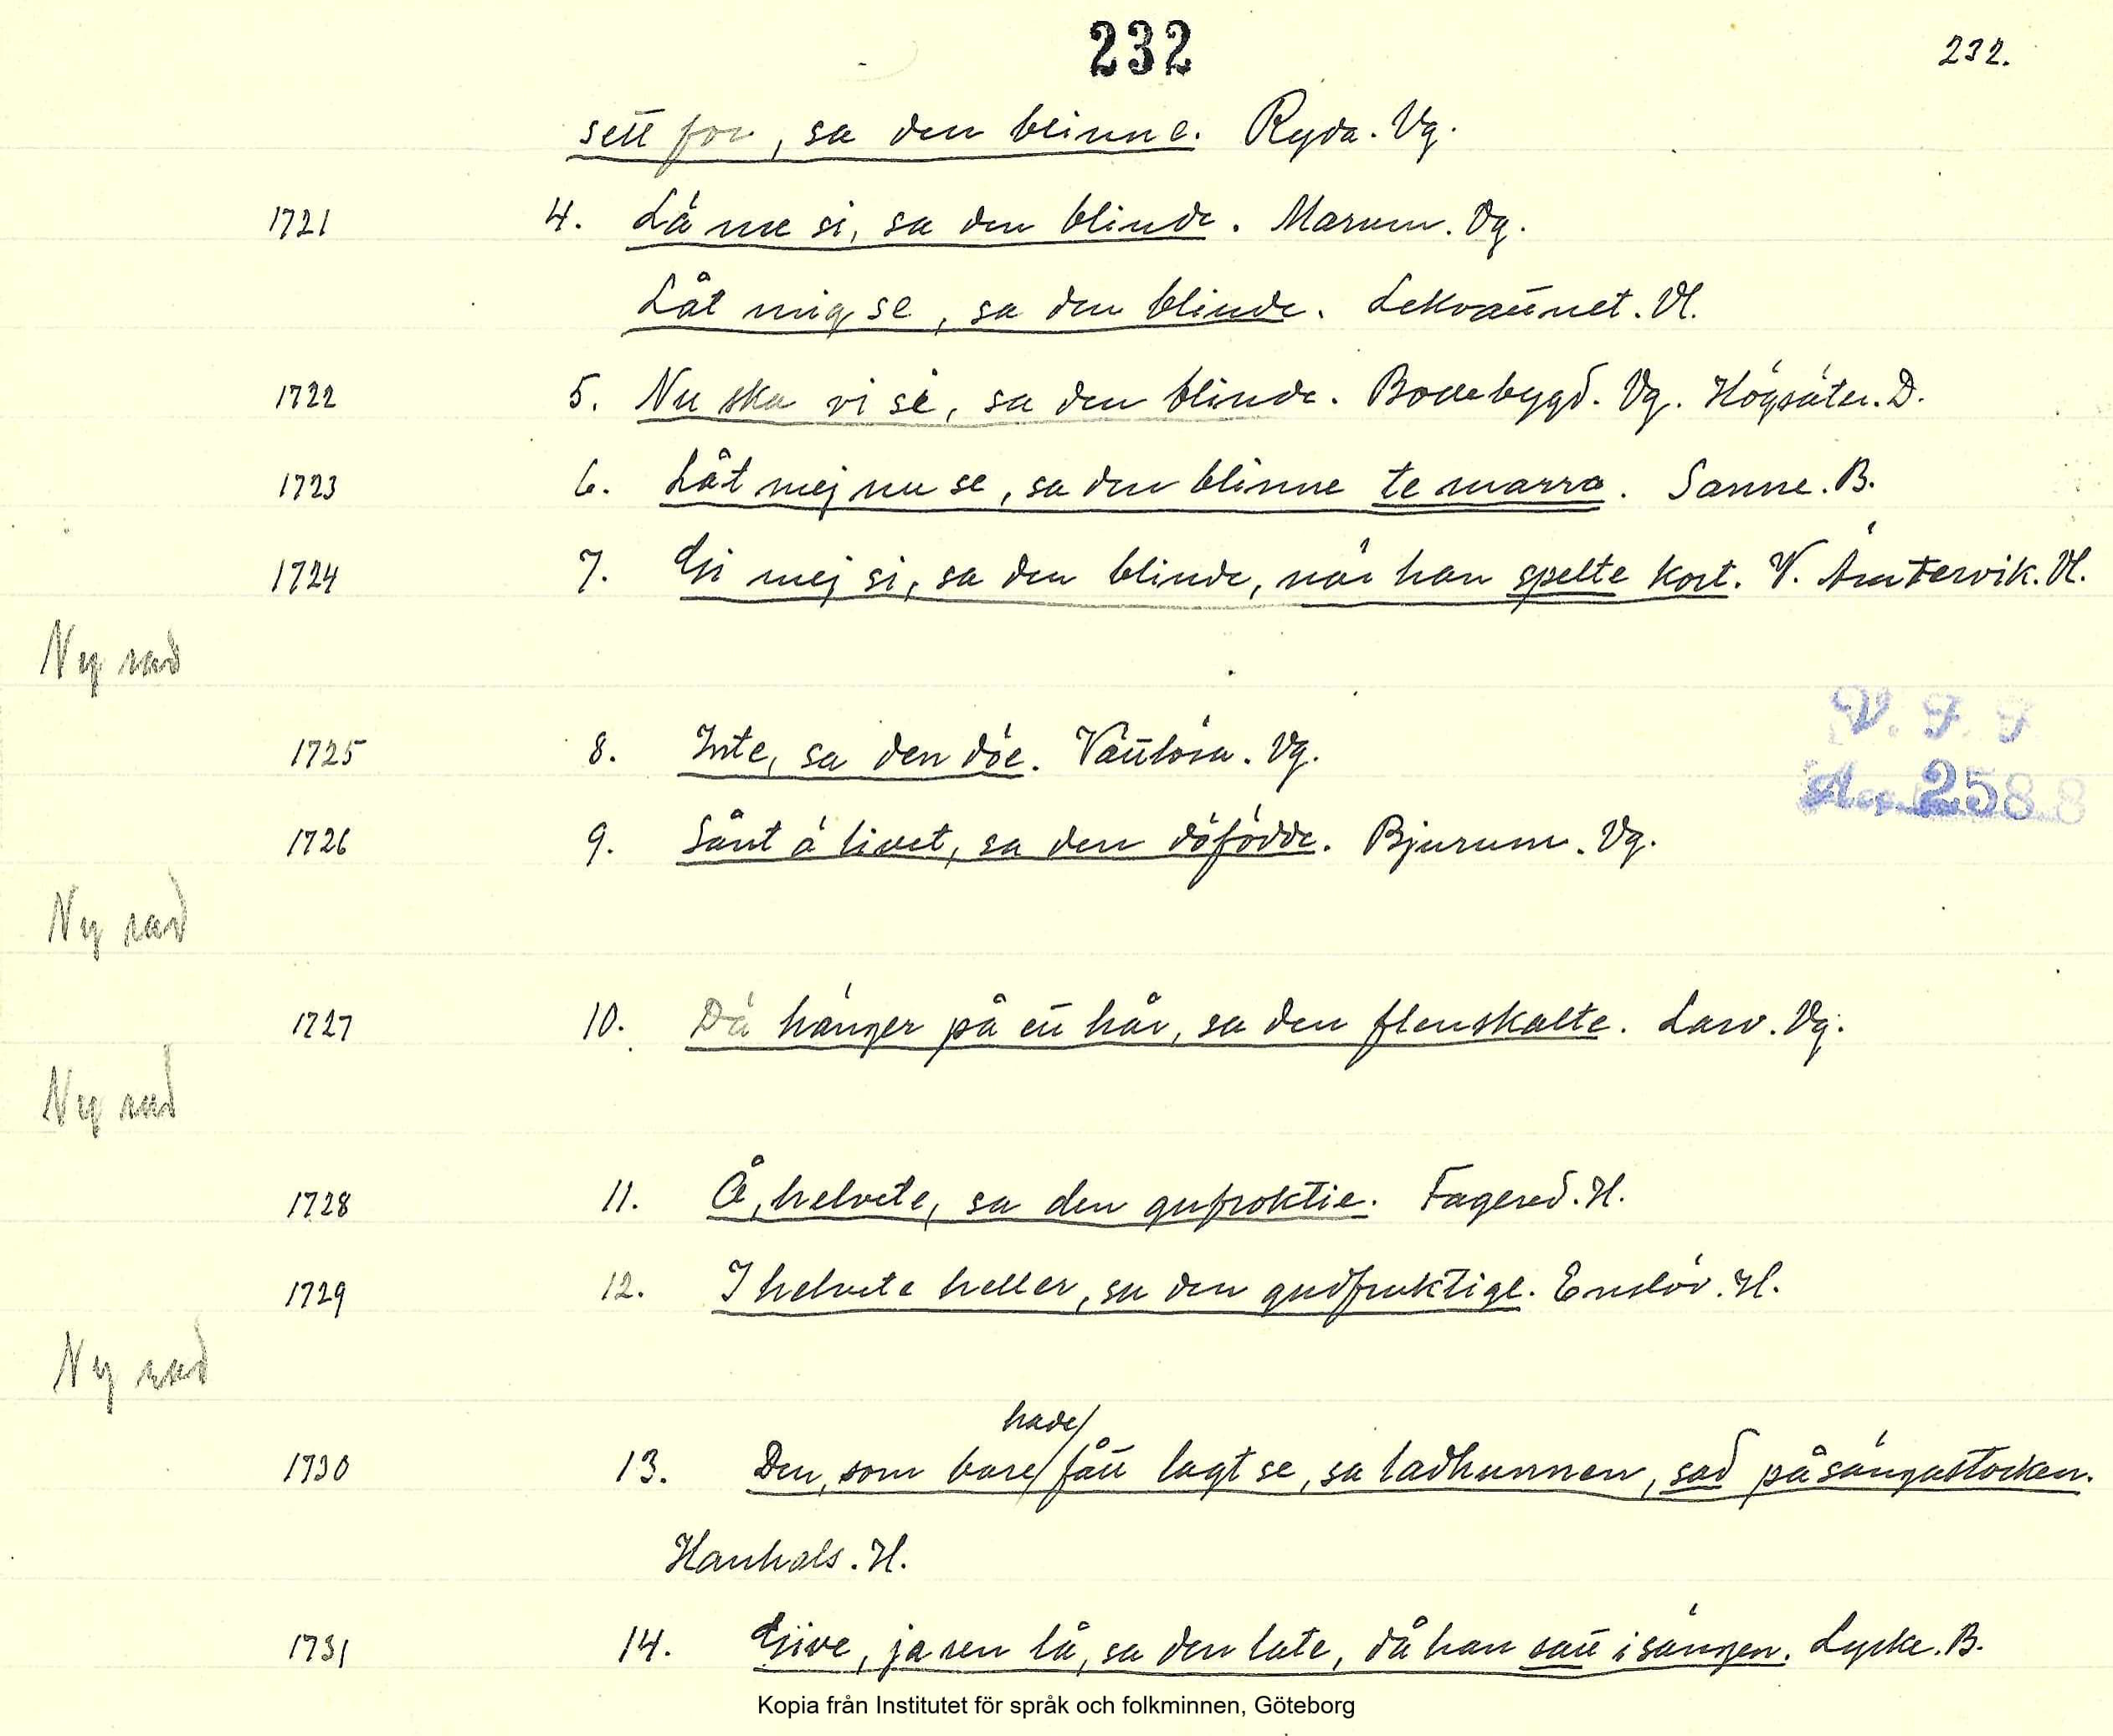 232 232.
sett for, sa den blinne. Ryda. Vg.
1721 4. Lä me si, sa den blinde. Marum. Vg.
Låt mig se, sa den blinde. Lekvattnet. Vl.
1722 5. Nu ska vi sé, sa den blinde. Bollebygd. Vg. Högsäter. D.
1723 6. Låt mej nu se, sa den blinne te marra. Sanne. B.
1724 7. Gi mej si, sa den blinde, när han spelte kort. V. Ämtervik. Vl.
Ny rad
V. F. F
Acc. 2588
1725 8. Inte, sa den döe. Vättlösa. Vg.
1726 9. Sånt ä livet, sa den döfödde. Bjurum. Vg.
Ny rad
1727 10. Dä hänger på ett hår, sa den flenskalte. Larv. Vg.
Ny rad
1728 11. Å, helvete, sa den gufroktie. Fagered. H.
1729 12. I helvete heller, sa den gudfruktige. Enslöv. H.
Ny rad
hade/
1730 13. Den, som bare/fått lagt se, sa ladhunnen, sad på sängastocken.
Hanhals. H.
1731 14. Give, ja ren lå, sa den late, då han satt i sängen. Lyske. B.
Kopia från Institutet för språk och folkminnen, Göteborg